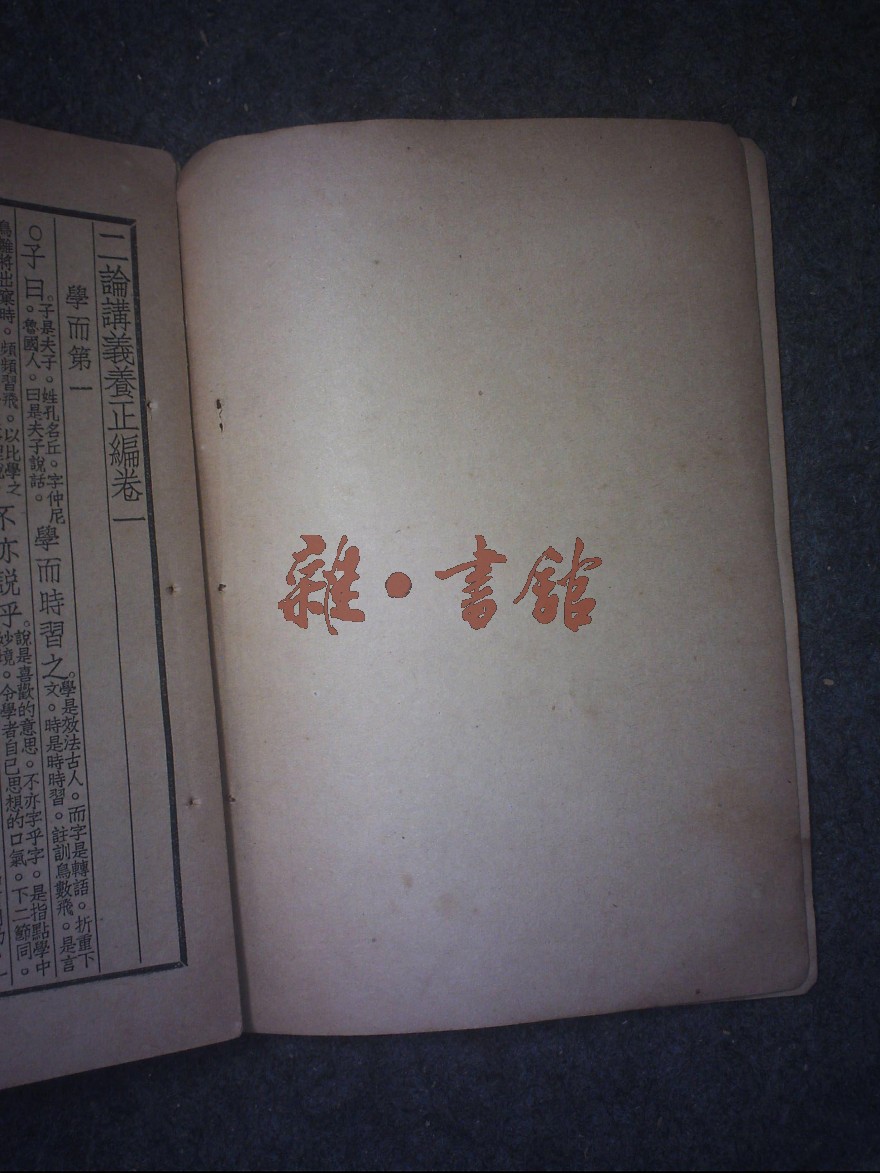 二論講義養正編卷一
學而第一
○子曰。子是夫子。姓孔名丘。字仲尼。魯國人。曰是夫子說話。學而時習之。學是效法古人。而字是轉語。折重下文。時是時時習。註訓鳥數飛。是言
鳥雛將出窠時。頻頻習飛。以比學之不亦説乎。說是喜歡的意思。不亦字乎字。是指點學中妙境。令學者自己思想的口氣。下二節同。
雜·書館